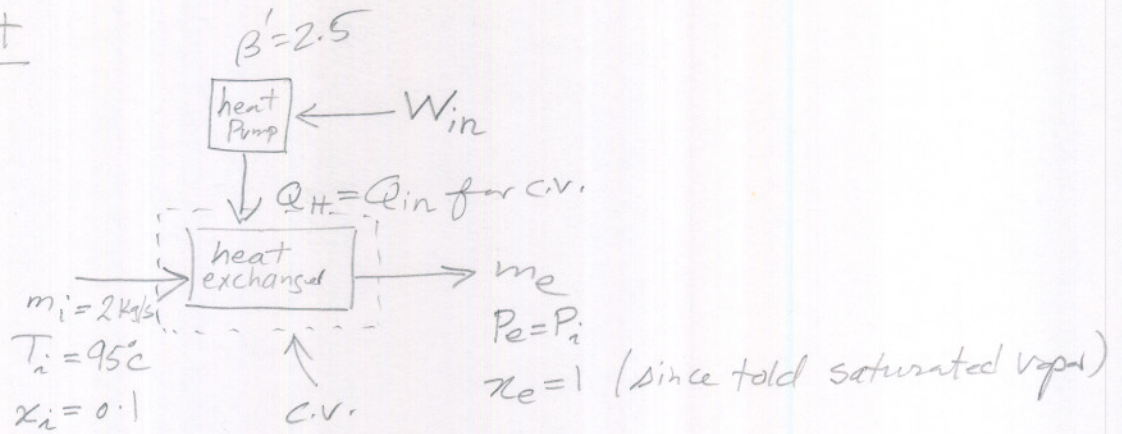 t
β'=2.5
heat
Pump
Win
Q_H = Q_in for c.v.
heat
exchanger
m_i = 2 kg/s
T_i = 95°c
x_i = 0.1
c.v.
m_e
P_e = P_i
x_e = 1 (since told saturated vapor)